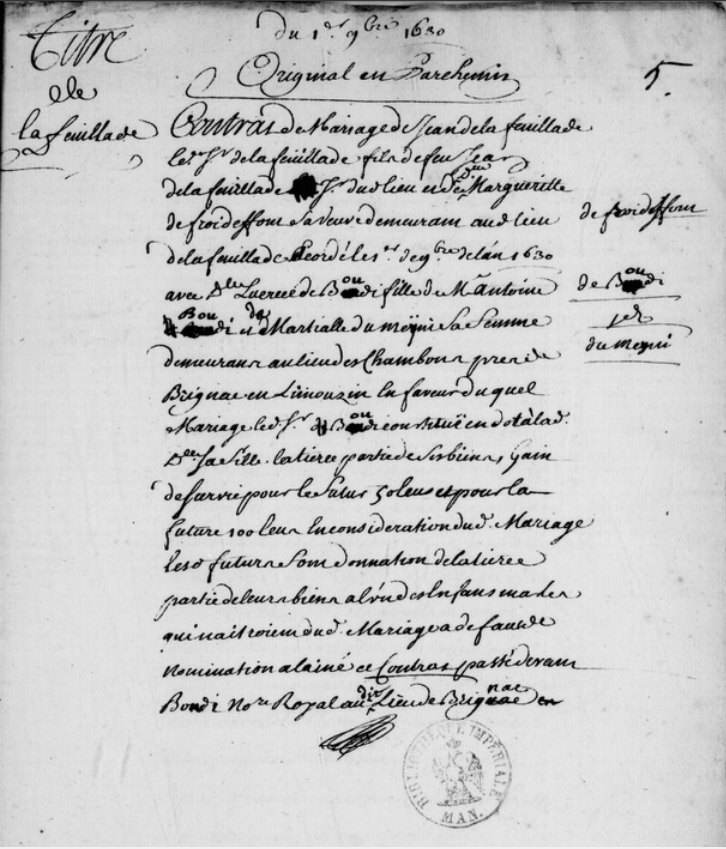 Titre
de
la feuillade
du 1er 9bre 1630
Original en Parchemin
5.
Contrat de Mariage de Jean de la feuillade
led. Sr. de la feuillade fils de feu Jean
de la feuillade Sr. dud. lieu et de dme Marguerite
de froideffom sa veuve demeurant aud. lieu
de froideffom
de la feuillade accordé le 1er de 9bre de l'an 1630
avec dlle Lucrece de Boudi fille de Me Antoine
de Boudi
Boudi et de Martialle du meyni sa femme
et
du meyni
demeurans au lieu des Chambons pres de
Brignac en Limouzin En faveur du quel
Mariage led. Sr. Boudi constituë en dot à lad.
dlle sa fille la tierce partie de ses biens, Gain
de survie pour le futur 50 leus et pour la
future 100 leus En consideration dud. Mariage
lesd. futurs font donnation de la tierce
partie de leurs biens a l'un des Enfans males
qui naitroient dud. Mariage a defaut de
nomination a lainé ce Contrat passé devant
Bondi Nore Royal aud. dit Lieu de Brignac
BIBLIOTHÈQUE IMPÉRIALE
MAN.